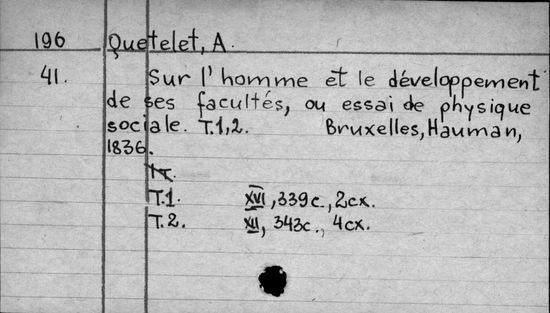 196 Quetelet, A.
41. Sur l'homme et le développement
de ses facultés, ou essai de physique
sociale. T.1,2. Bruxelles, Hauman,
1836.
T.1. XVI, 339c., 2cx.
T.2. XII, 343c., 4cx.